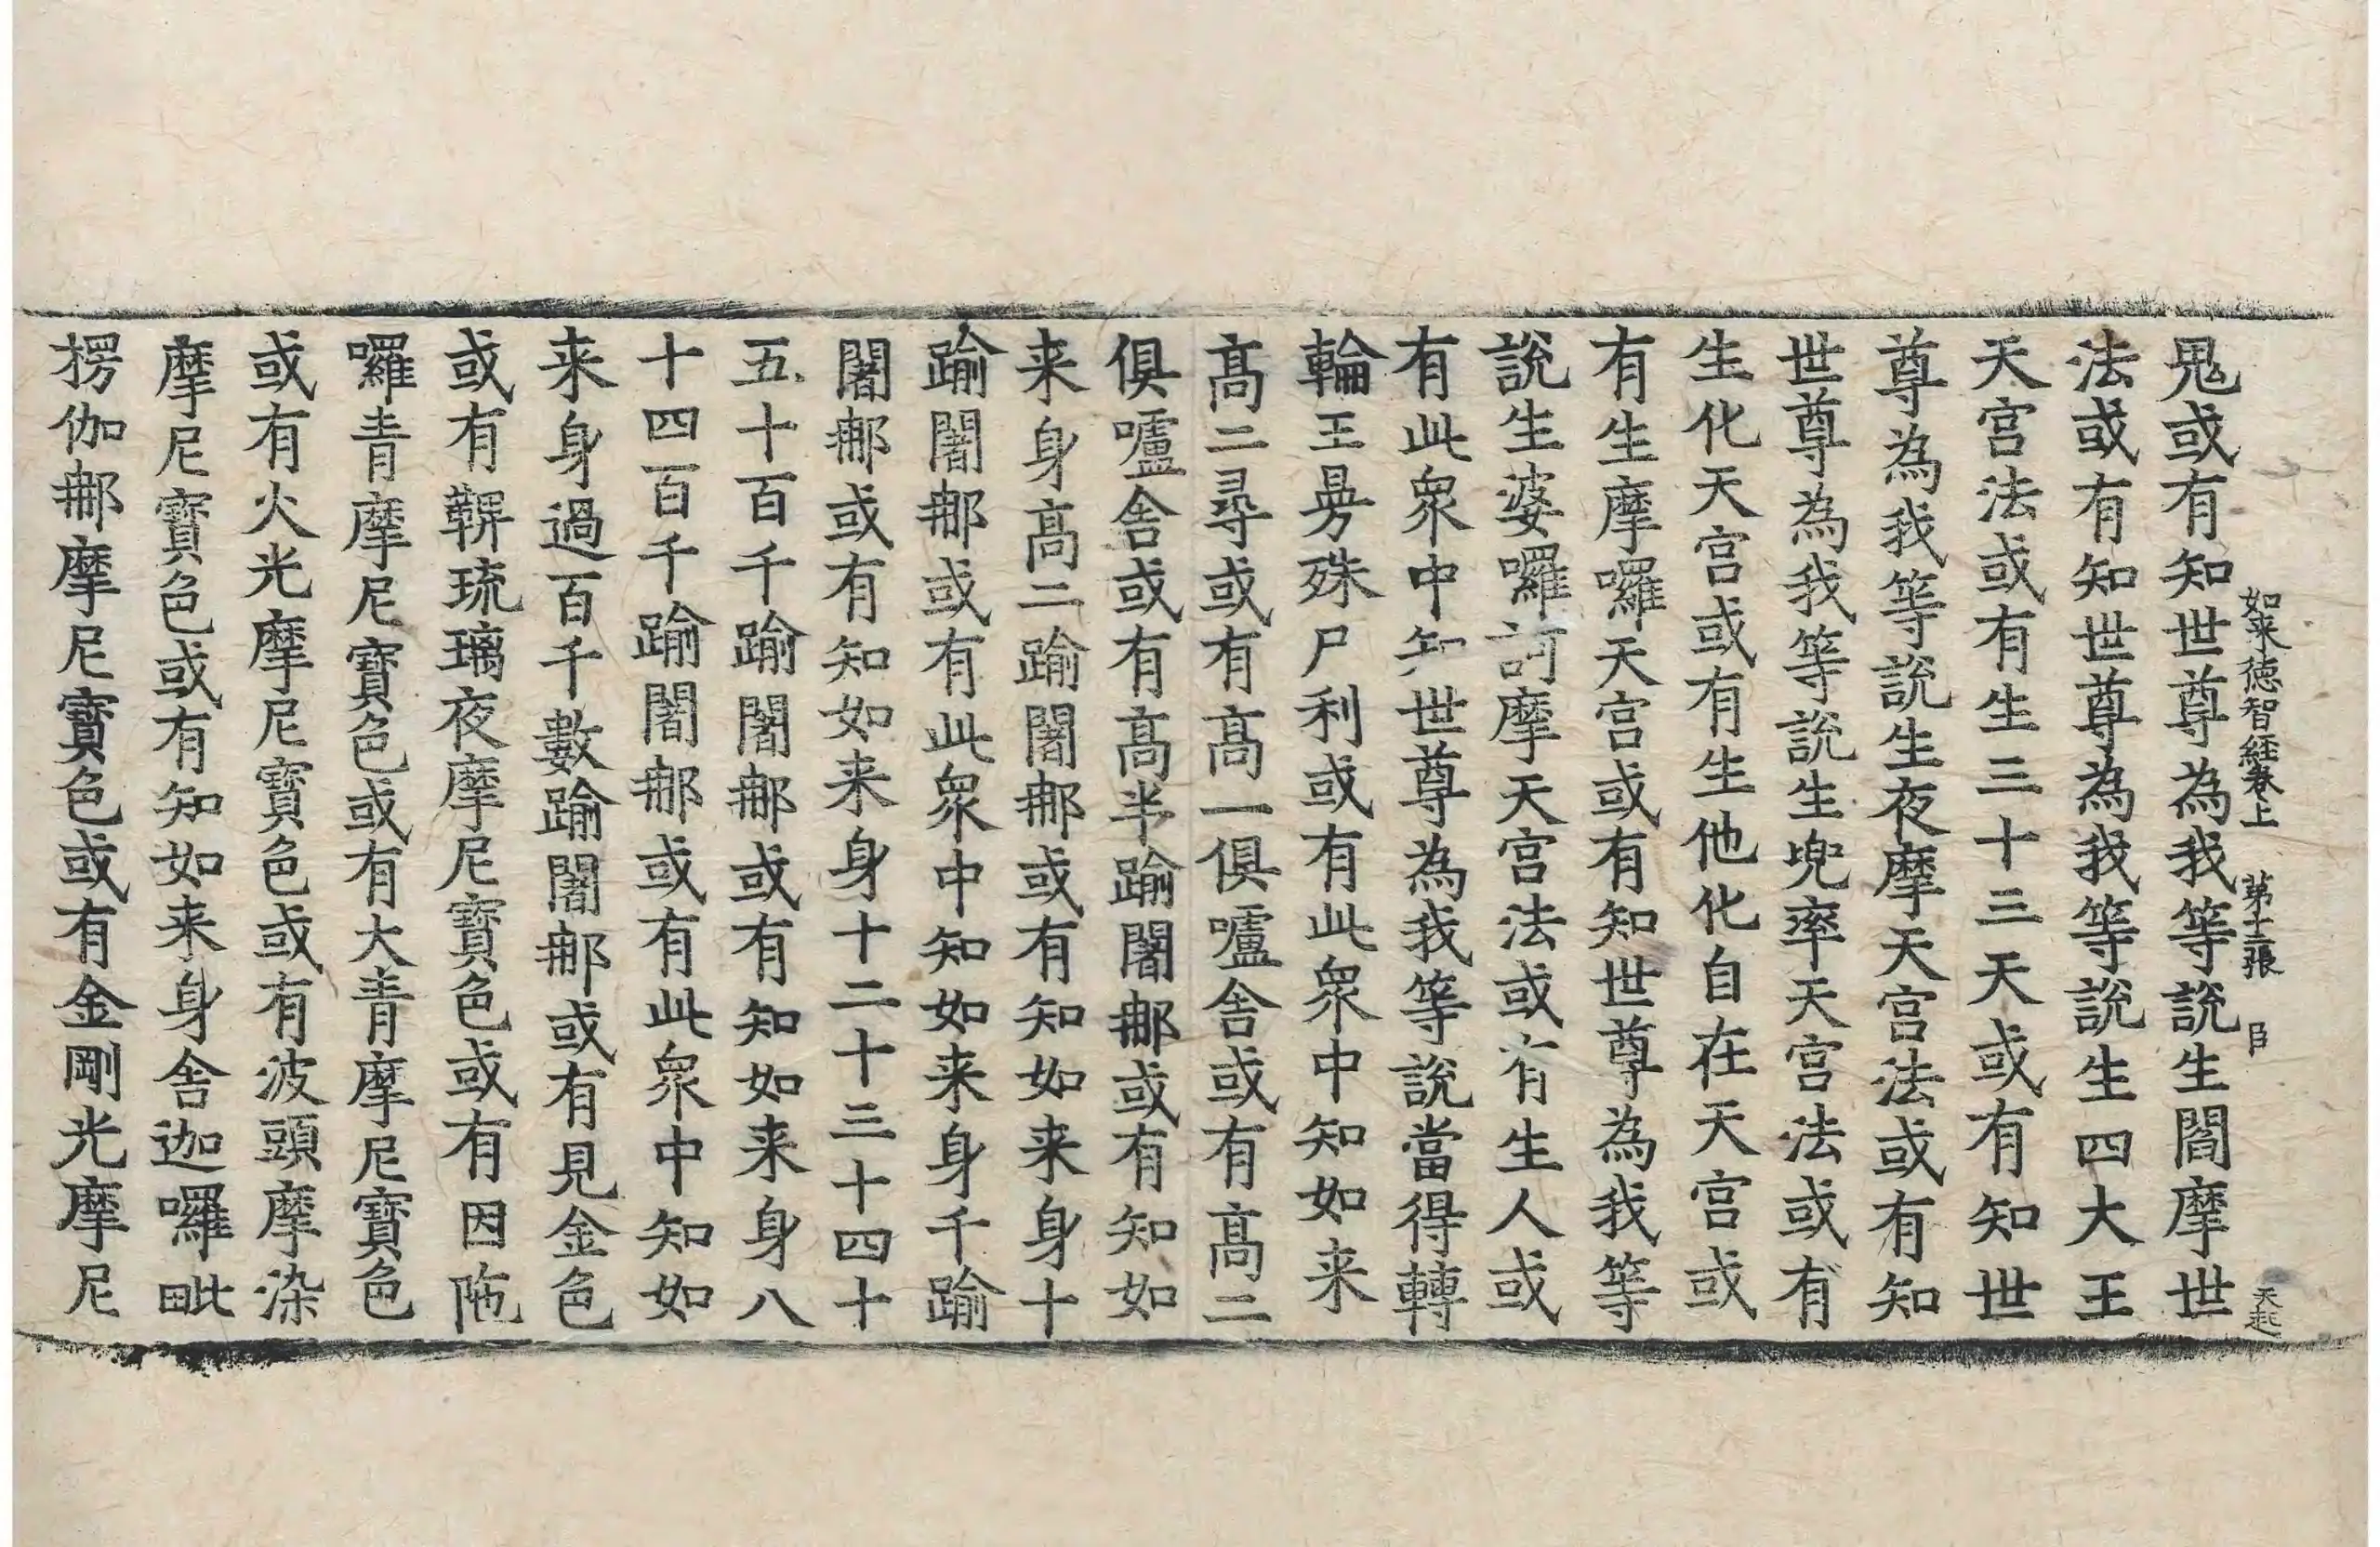 如来德智經卷上　第十二張　臣　天起
鬼或有知世尊為我等說生閻摩世
法或有知世尊為我等說生四大王
天宮法或有生三十三天或有知世
尊為我等說生夜摩天宮法或有知
世尊為我等說生兜率天宮法或有
生化天宮或有生他化自在天宮或
有生摩囉天宮或有知世尊為我等
說生婆囉訶摩天宮法或有生人或
有此衆中知世尊為我等說當得轉
輪王曼殊尸利或有此衆中知如来
髙二尋或有髙一俱嚧舍或有髙二
俱嚧舍或有髙半踰闍那或有知如
来身髙二踰闍那或有知如来身十
踰闍那或有此衆中知如来身千踰
闍那或有知如来身十二十三十四十
五十百千踰闍那或有知如来身八
十四百千踰闍那或有此衆中知如
来身過百千數踰闍那或有見金色
或有鞞琉璃夜摩尼寶色或有因陁
囉青摩尼寶色或有大青摩尼寶色
或有火光摩尼寶色或有波頭摩染
摩尼寶色或有知如来身舍迦囉毗
楞伽那摩尼寶色或有金剛光摩尼